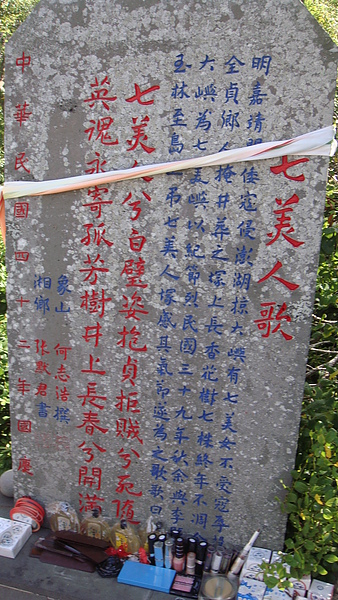 七美人歌
明嘉靖間倭寇侵澎湖掠大嶼有七美女不受寇辱
全貞鄉人掩井葬之塚上長香花樹七株終年不凋余
大嶼為七美嶼以紀節烈民國三十九年秋余與李
玉林至島上吊七美人塚感其氣節遂為之歌歌曰
七美人兮白璧姿抱貞拒賊兮死隨
英魂永寄孤芳樹井上長春兮開滿
象山 何志浩撰
湘鄉 張默君書
中華民國四十二年國慶